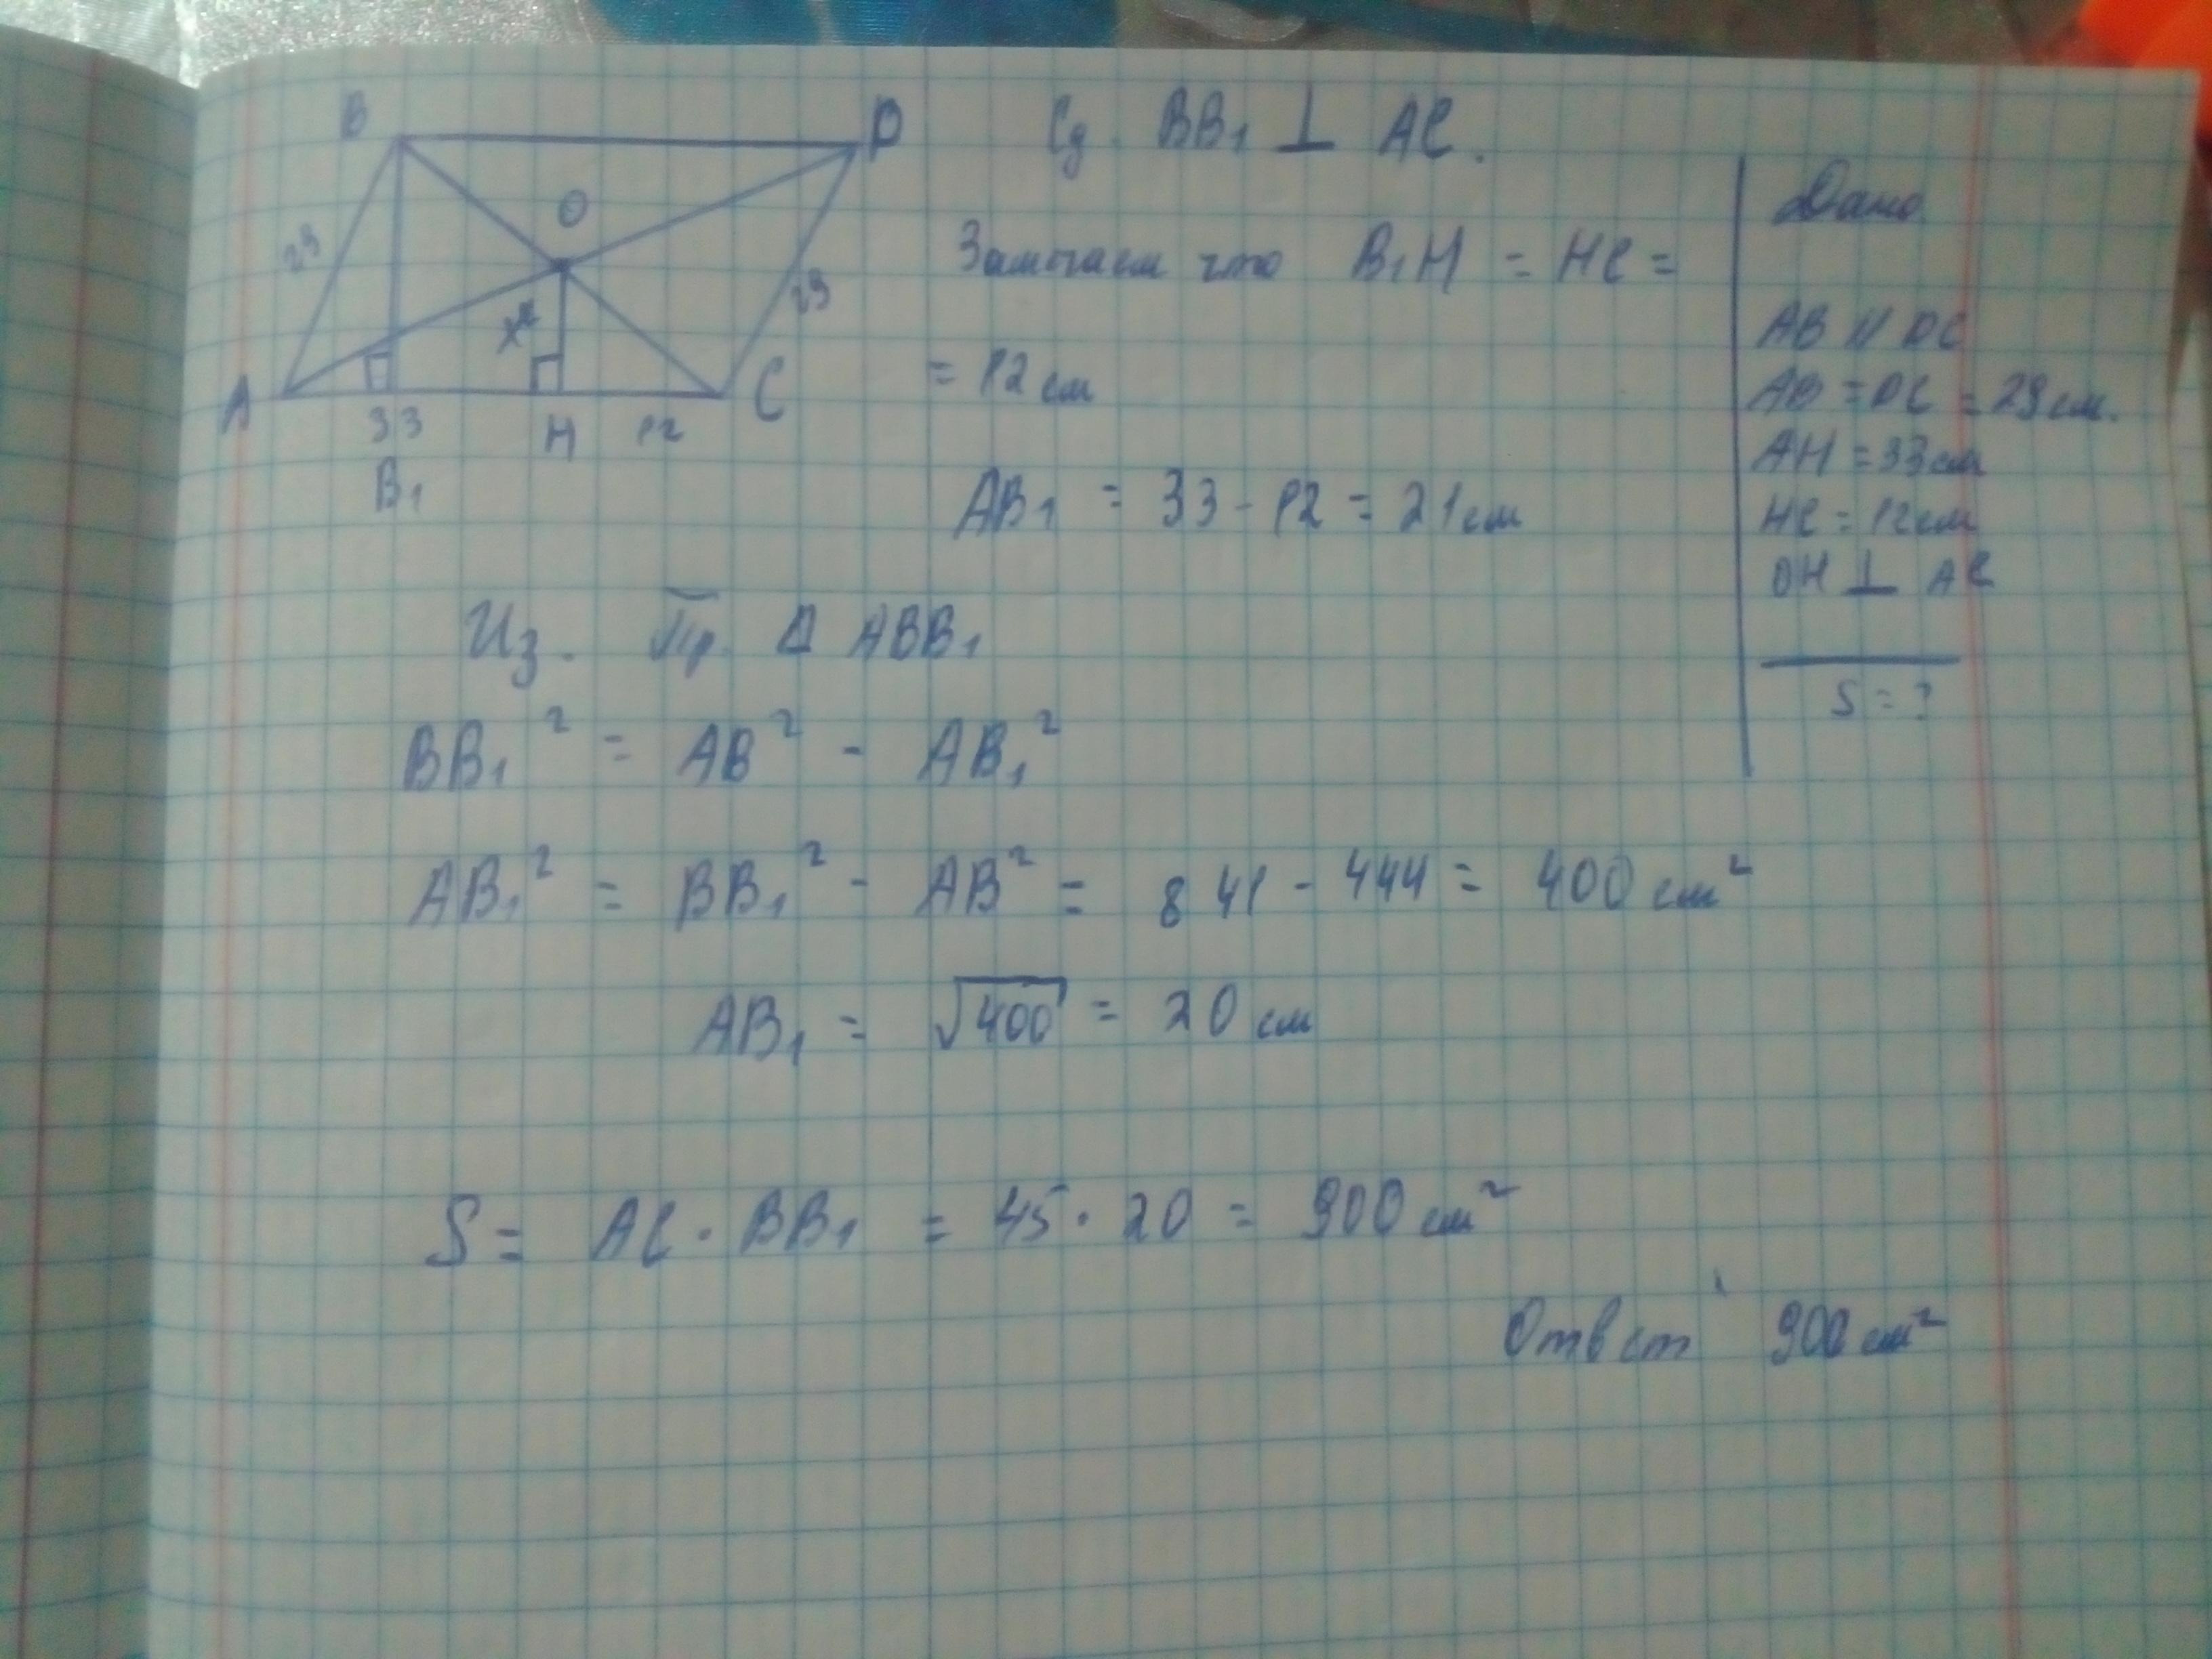 B D
O
29
29
x
A 33 H 12 C
B₁
Cд. BB₁ ⊥ AC.
Замечаем что B₁H = HC =
= 12 см
AB₁ = 33 - 12 = 21 см
Дано
AB || DC
AB = DC = 29 см.
AH = 33 см
HC = 12 см
OH ⊥ AC
S = ?
Из. Пр. Δ ABB₁
BB₁² = AB² - AB₁²
AB₁² = BB₁² - AB² = 841 - 444 = 400 см²
AB₁ = √400 = 20 см
S = AC · BB₁ = 45 · 20 = 900 см²
Ответ 900 см²